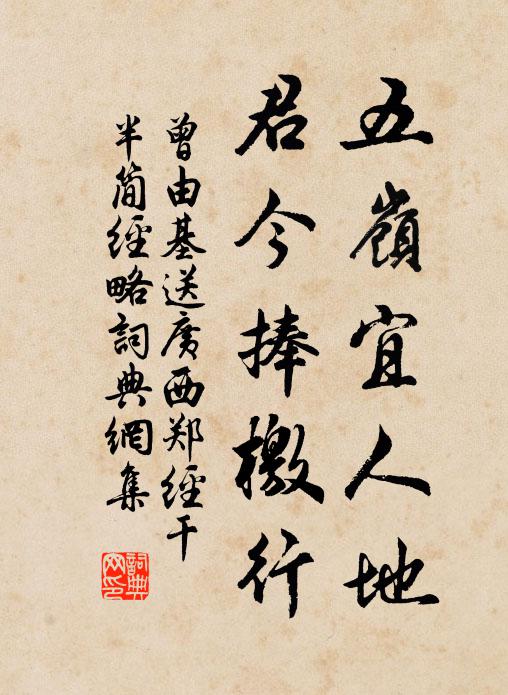 五嶺宜人地
君今捧檄行
曾由基送廣西郑經干
半簡經略詞典網集
詞典
网印